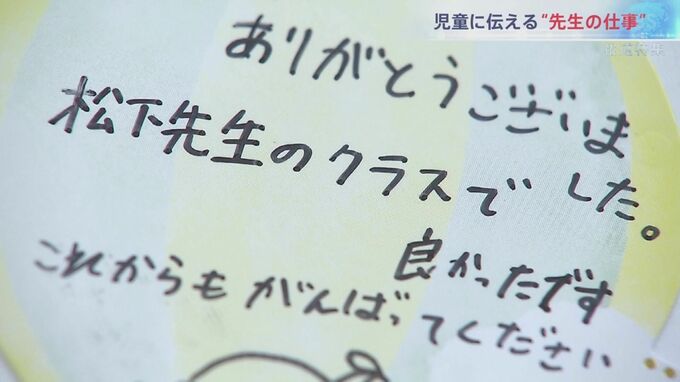 児童に伝える"先生の仕事"
報道特集
ありがとうございま
した。
松下先生のクラスで
良かったです
これからもがんばってください